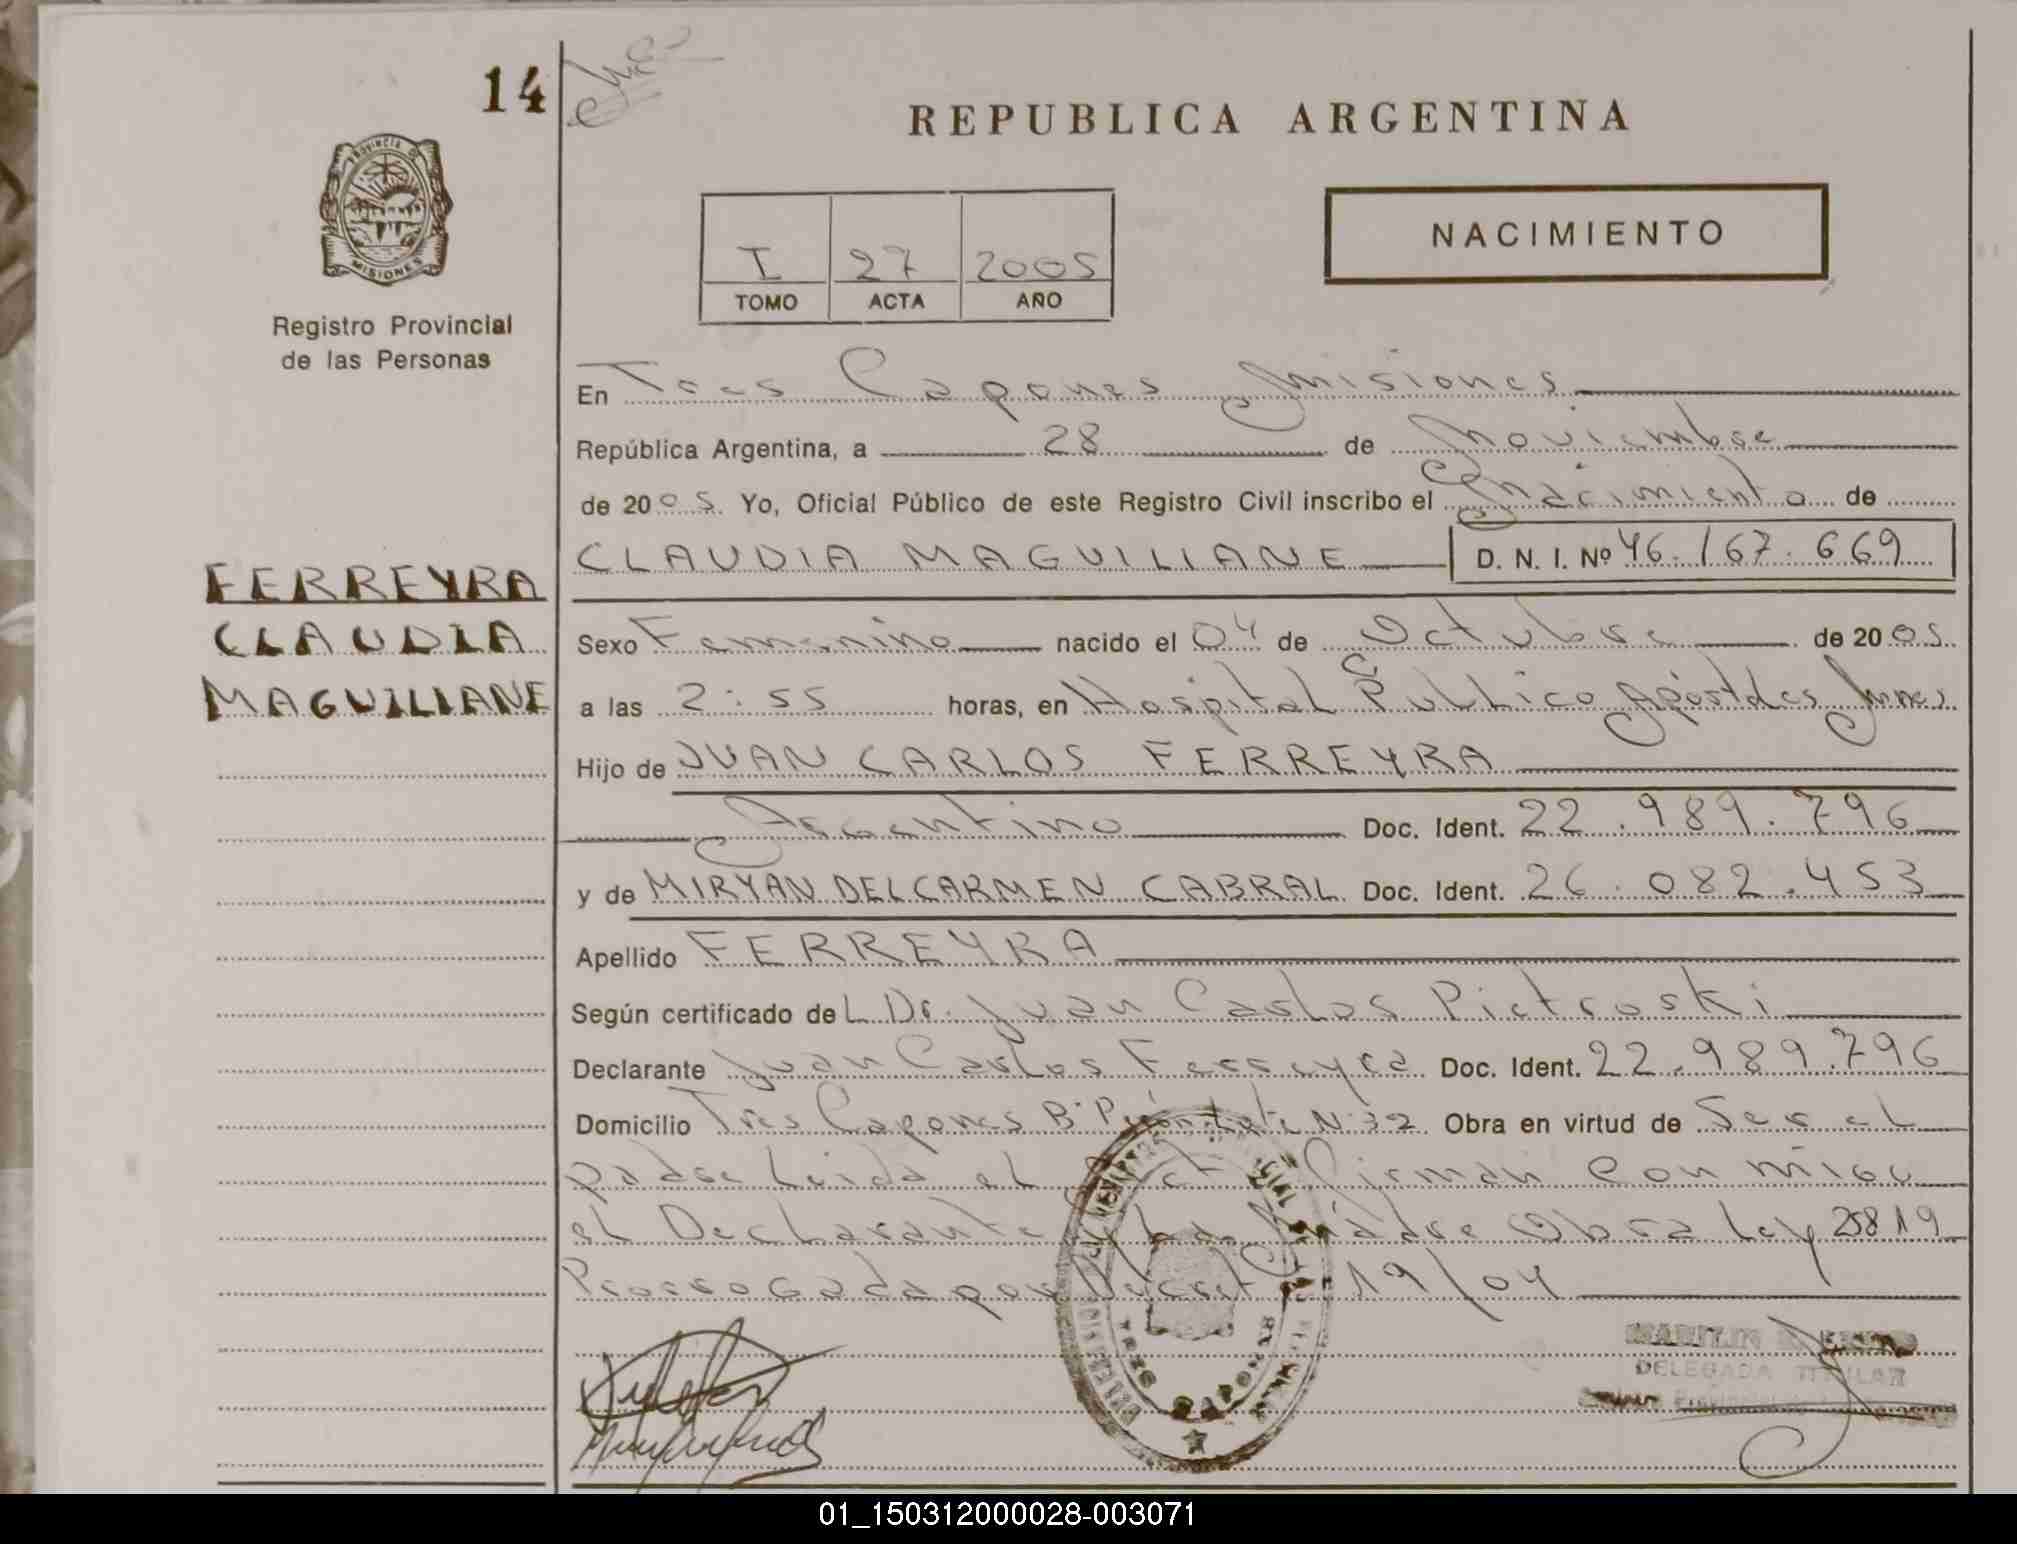 14
REPUBLICA ARGENTINA
PROVINCIA DE
MISIONES
NACIMIENTO
I 27 2005
TOMO ACTA AÑO
Registro Provincial
de las Personas
En Tres Capones Misiones
República Argentina, a 28 de Noviembre
de 2005. Yo, Oficial Público de este Registro Civil inscribo el nacimiento de
CLAUDIA MAGUILIANE D. N. I. Nº 46.167.669
FERREYRA
CLAUDIA
MAGUILIANE
Sexo Femenino nacido el 04 de Octubre de 2005
a las 2:55 horas, en Hospital Publico Apóstoles Mnes
Hijo de JUAN CARLOS FERREYRA
Argentino Doc. Ident. 22.989.796
y de MIRYAN DEL CARMEN CABRAL Doc. Ident. 26.082.453
Apellido FERREYRA
Según certificado del Dr. Juan Carlos Pietroski
Declarante Juan Carlos Ferreyra Doc. Ident. 22.989.796
Domicilio Tres Capones Bº Lote Nº 32 Obra en virtud de Ser el
padre Leida el Acta Firman Conmigo
el Declarante y La Madre Obra Ley 25819
Prorrogada por Decreto 19/04
TRES CAPONES
DELEGADA TITULAR
01_150312000028-003071